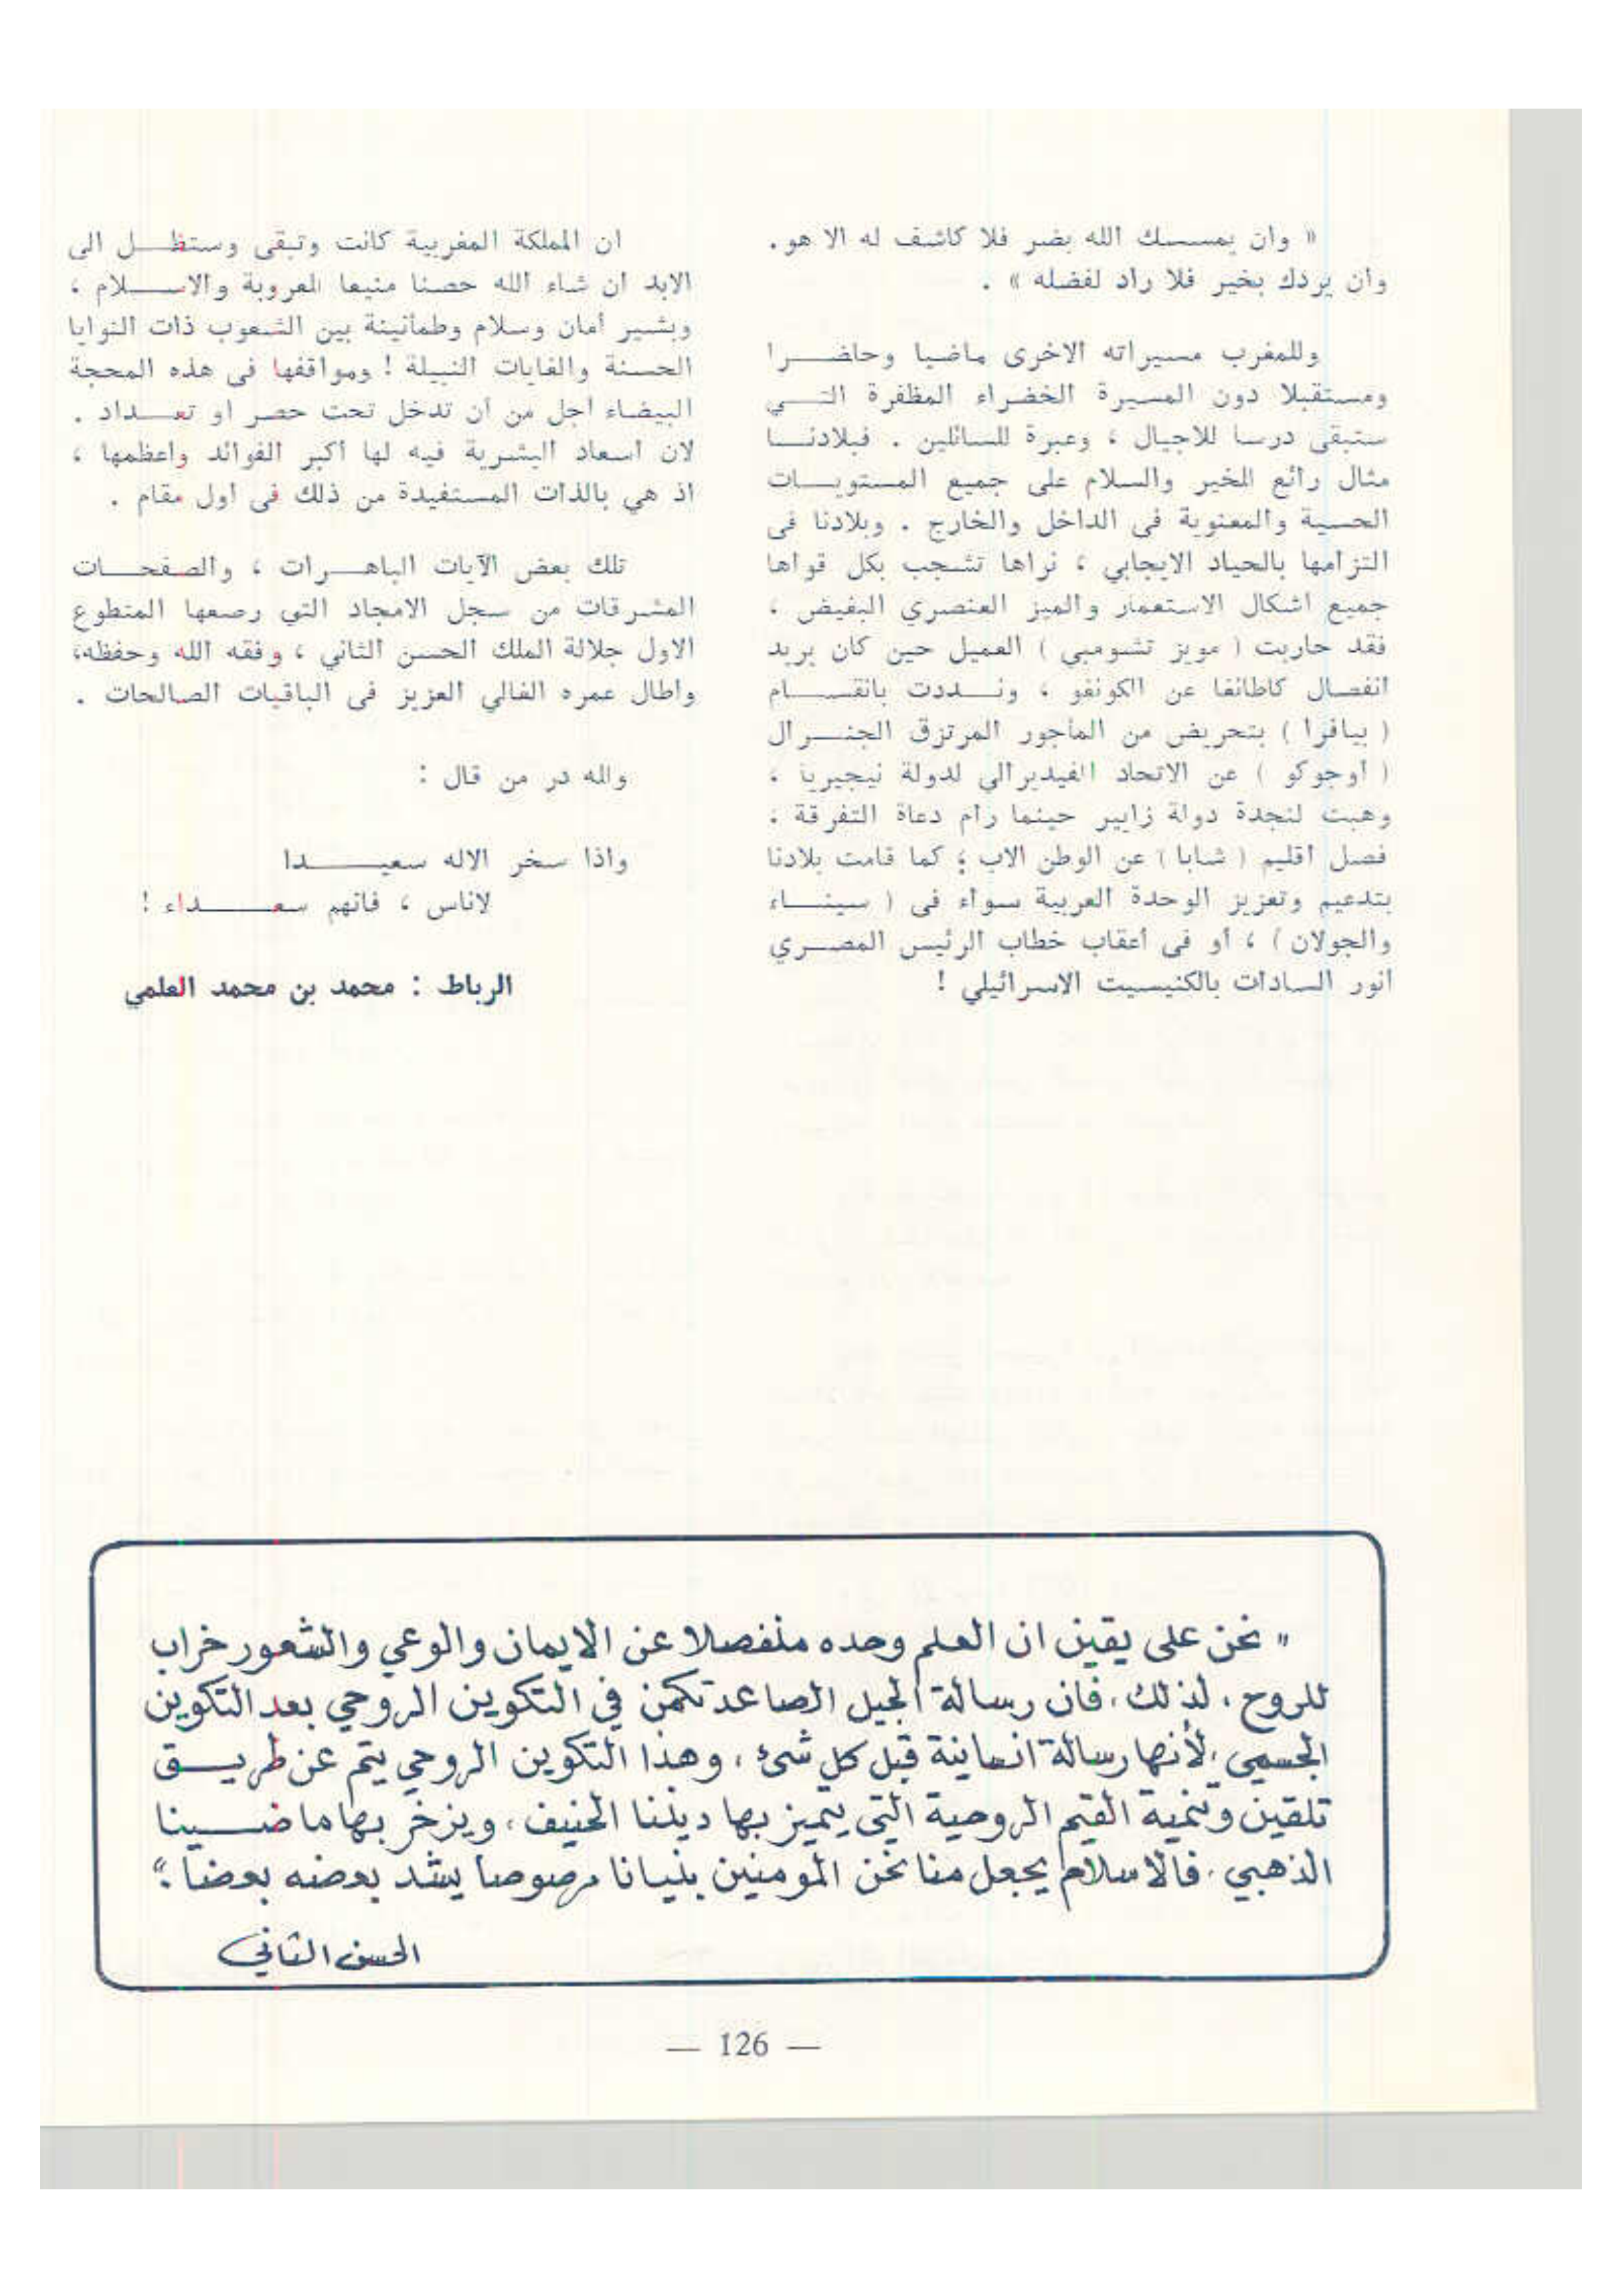 « وان يمسسك الله بضر فلا كاشف له الا هو .
وان يردك بخير فلا راد لفضله » .
وللمغرب مسيراته الاخرى ماضيا وحاضـــرا
ومستقبلا دون المسيرة الخضراء المظفرة التـــي
ستبقى درسا للاجيال ، وعبرة للسائلين . فبلادنـــا
مثال رائع للخير والسلام على جميع المستويـــات
الحسية والمعنوية فى الداخل والخارج . وبلادنا فى
التزامها بالحياد الايجابي ، نراها تشجب بكل قواها
جميع اشكال الاستعمار والميز العنصري البغيض ،
فقد حاربت ( مويز تشومبي ) العميل حين كان يريد
انفصال كاطانغا عن الكونغو ، ونـــددت بانقســـام
( بيافرا ) بتحريض من الماجور المرتزق الجنـــرال
( أوجوكو ) عن الاتحاد الفيديرالي لدولة نيجيريا ،
وهبت لنجدة دولة زايير حينما رام دعاة التفرقة ،
فصل اقليم ( شابا ) عن الوطن الاب ؛ كما قامت بلادنا
بتدعيم وتعزيز الوحدة العربية سواء فى ( سينـــاء
والجولان ) ، أو فى أعقاب خطاب الرئيس المصـــري
انور السادات بالكنيسيت الاسرائيلي !
ان المملكة المغربية كانت وتبقى وستظـــل الى
الابد ان شاء الله حصنا منيعا للعروبة والاســـلام ،
وبشير أمان وسلام وطمأنينة بين الشعوب ذات النوايا
الحسنة والغايات النبيلة ! ومواقفها فى هذه المحجة
البيضاء اجل من أن تدخل تحت حصر او تعـــداد .
لان اسعاد البشرية فيه لها أكبر الفوائد واعظمها ،
اذ هي بالذات المستفيدة من ذلك فى اول مقام .
تلك بعض الآيات الباهـــرات ، والصفحـــات
المشرقات من سجل الامجاد التي رصعها المتطوع
الاول جلالة الملك الحسن الثاني ، وفقه الله وحفظه،
واطال عمره الغالي العزيز فى الباقيات الصالحات .
ولله در من قال :
واذا سخر الاله سعيـــدا
لاناس ، فانهم سعـــداء !
الرباط : محمد بن محمد العلمي
" نحن على يقين ان العلم وحده منفصلا عن الايمان والوعي والشعور خراب
للروح ، لذلك ، فان رسالة الجيل الصاعد تكمن في التكوين الروحي بعد التكوين
الجسمي ، لأنها رسالة انسانية قبل كل شئ ، وهذا التكوين الروحي يتم عن طريـــق
تلقين وتنمية القيم الروحية التي يتميز بها ديننا الحنيف ، ويزخر بها ماضـــينا
الذهبي ، فالاسلام يجعل منا نحن المومنين بنيانا مرصوصا يشد بعضه بعضا ."
الحسن الثاني
— 126 —